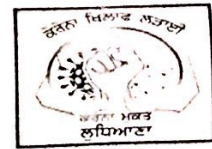 ਕਰੋਨਾ ਖਿਲਾਫ ਲੜਾਈ
ਕਰੋਨਾ ਮੁਕਤ
ਲੁਧਿਆਣਾ